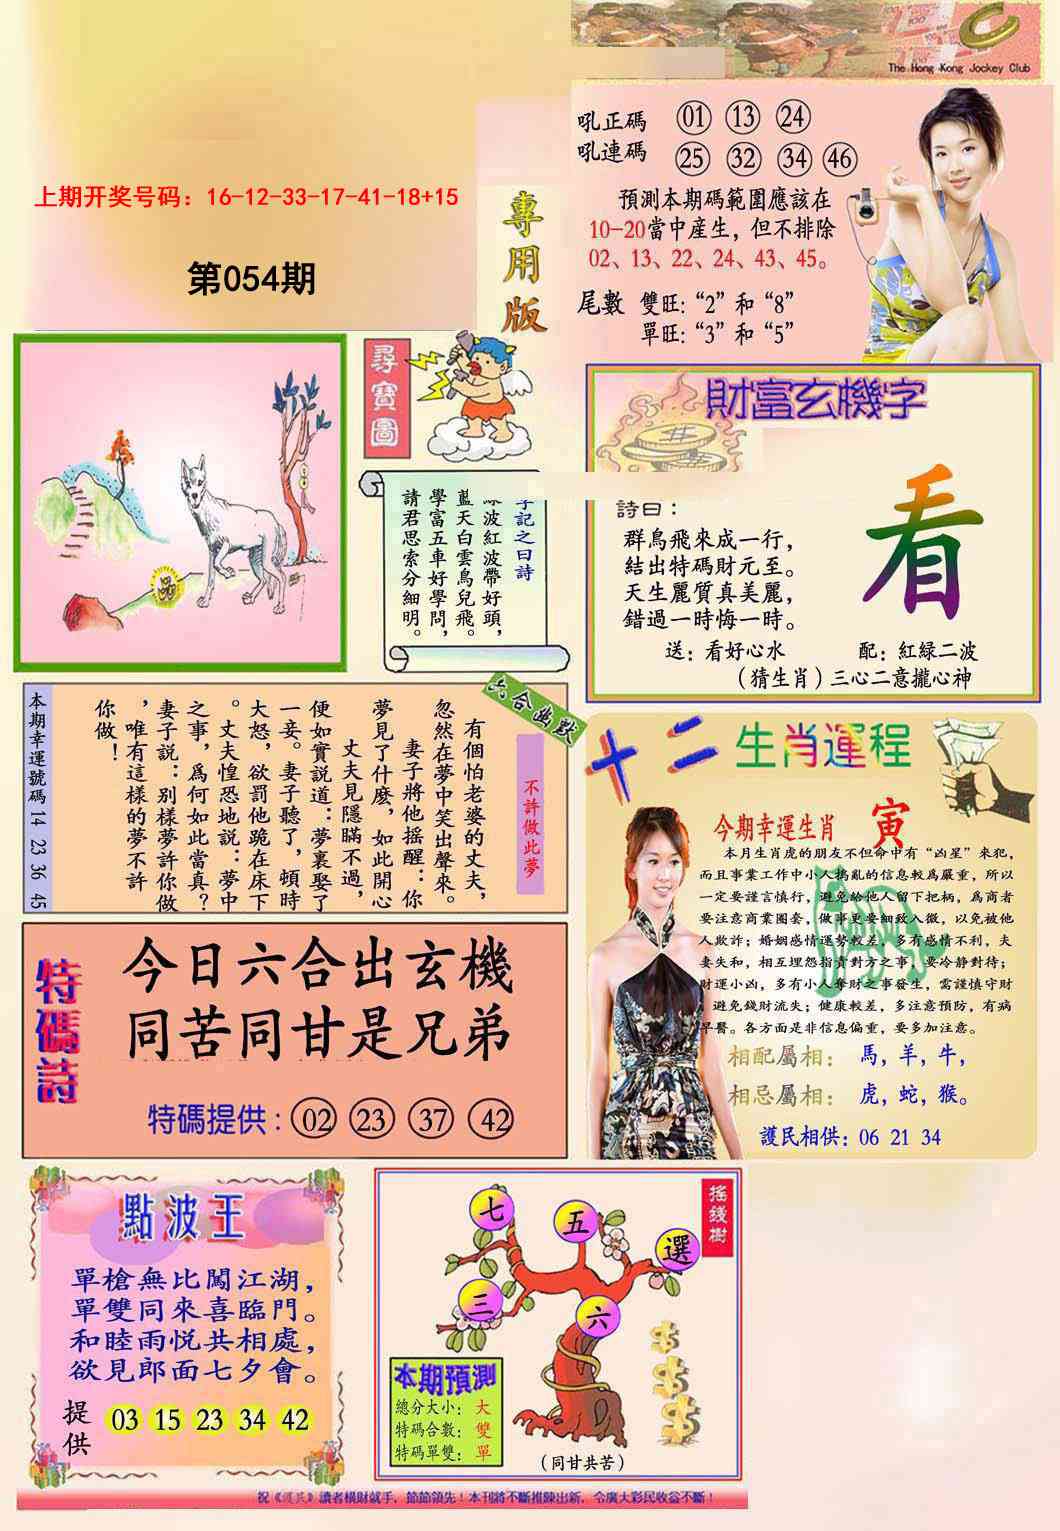 The Hong Kong Jockey Club
上期开奖号码：16-12-33-17-41-18+15
第054期
專用版
吼正碼 01 13 24
吼連碼 25 32 34 46
預測本期碼範圍應該在
10-20當中産生，但不排除
02、13、22、24、43、45。
尾數 雙旺:“2”和“8”
單旺:“3”和“5”
尋寶圖
字記之曰詩
波紅波帶好頭，
藍天白雲鳥兒飛。
學富五車好學問，
請君思索分細明。
財富玄機字
看
詩曰：
群鳥飛來成一行，
結出特碼財元至。
天生麗質真美麗，
錯過一時悔一時。
送：看好心水 配：紅緑二波
（猜生肖）三心二意攏心神
六合幽默
不許做此夢
有個怕老婆的丈夫，
忽然在夢中笑出聲來。
妻子將他摇醒：你
夢見了什麽，如此開心
丈夫見隱瞞不過，
便如實説道：夢裏娶了
一妾。妻子聽了，頓時
大怒，欲罰他跪在床下
。丈夫惶恐地説：夢中
之事，爲何如此當真？
妻子説：别樣夢許你做
，唯有這樣的夢不許
你做！
本期幸運號碼 14 23 36 45
十二生肖運程
今期幸運生肖 寅
本月生肖虎的朋友不但命中有“凶星”來犯，
而且事業工作中小人搗亂的信息較爲嚴重，所以
一定要謹言慎行，避免給他人留下把柄，爲商者
要注意商業圈套，做事更要細致入微，以免被他
人欺詐；婚姻感情運勢較差，多有感情不利，夫
妻失和，相互埋怨指責對方之事，要冷静對待；
財運小凶，多有小人奪財之事發生，需謹慎守財
，避免錢財流失；健康較差，多注意預防，有病
早醫。各方面是非信息偏重，要多加注意。
相配屬相： 馬，羊，牛，
相忌屬相： 虎，蛇，猴。
護民相供：06 21 34
特碼詩
今日六合出玄機
同苦同甘是兄弟
特碼提供：02 23 37 42
點波王
單槍無比闖江湖，
單雙同來喜臨門。
和睦雨悦共相處，
欲見郎面七夕會。
提供 03 15 23 34 42
摇錢樹
七 五 選
三 六
本期預測
總分大小：大
特碼合數：雙
特碼單雙：單
（同甘共苦）
祝《護民》讀者横財就手，節節領先！本刊將不斷推陳出新，令廣大彩民收益不斷！